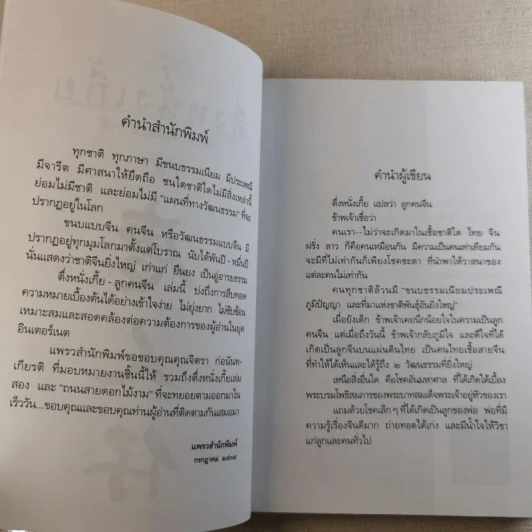 คำนำสำนักพิมพ์
ทุกชาติ ทุกภาษา มีขนบธรรมเนียม มีประเพณี
มีจารีต มีศาสนาให้ยึดถือ ชนใดชาติใดไม่มีสิ่งเหล่านี้
ย่อมไม่มีชาติ และย่อมไม่มี "แผนที่ทางวัฒนธรรม" ที่จะ
ปรากฏอยู่ในโลก
ขนบแบบจีน คนจีน หรือวัฒนธรรมแบบจีน มี
ปรากฏอยู่ทุกมุมโลกมาตั้งแต่โบราณ นับได้พันปี-หมื่นปี
นั่นแสดงว่าชาติจีนยิ่งใหญ่ เก่าแก่ ยืนยง เป็นอู่อารยธรรม
ตึ่งหนั่งเกี้ย - ลูกคนจีน เล่มนี้ บ่งถึงการสืบทอด
ความหมายเบื้องต้นได้อย่างเข้าใจง่าย ไม่ยุ่งยาก ไม่ซับซ้อน
เหมาะสมและสอดคล้องต่อความต้องการของผู้อ่านในยุค
อินเตอร์เนต
แพรวสำนักพิมพ์ขอขอบคุณคุณจิตรา ก่อนันท-
เกียรติ ที่มอบหมายงานชิ้นนี้ให้ รวมถึงตึ่งหนั่งเกี้ยเล่ม
สอง และ "ถนนสายดอกไม้งาม" ที่จะทยอยตามออกมาใน
เร็ววัน...ขอบคุณและขอบคุณท่านผู้อ่านที่ติดตามกันเสมอมา
แพรวสำนักพิมพ์
กรกฎาคม ๒๕๓๙
คำนำผู้เขียน
ตึ่งหนั่งเกี้ย แปลว่า ลูกคนจีน
ข้าพเจ้าเชื่อว่า
คนเรา--ไม่ว่าจะเกิดมาในเชื้อชาติใด ไทย จีน
ฝรั่ง ลาว ก็คือคนเหมือนกัน มีความเป็นคนเท่าเทียมกัน
จะมีที่ไม่เท่ากันก็เพียงโชคชะตา ที่นำพาให้วาสนาของ
แต่ละคนไม่เท่ากัน
คนทุกชาติล้วนมี "ขนบธรรมเนียมประเพณี
ภูมิปัญญา และที่มาแห่งชาติพันธุ์อันยิ่งใหญ่"
เมื่อยังเด็ก ข้าพเจ้าเคยนึกน้อยใจในความเป็นลูก
คนจีน แต่เมื่อถึงวันนี้ ข้าพเจ้ากลับภูมิใจ และดีใจที่ได้
เกิดเป็นลูกจีนบนแผ่นดินไทย เป็นคนไทยเชื้อสายจีน
ที่ทำให้ได้เห็นและได้รู้ถึง ๒ วัฒนธรรมที่ยิ่งใหญ่
เหนือสิ่งอื่นใด คือโชคอันมหาศาล ที่ได้เกิดใต้เบื้อง
พระบรมโพธิสมภารของพระบาทสมเด็จพระเจ้าอยู่หัวของเรา
แถมด้วยโชคเล็กๆ ที่ได้เกิดเป็นลูกของพ่อ พ่อที่มี
ความรู้เรื่องจีนดีมาก ถ่ายทอดได้เก่ง และมีน้ำใจให้วิชา
แก่ลูกและคนทั่วไป